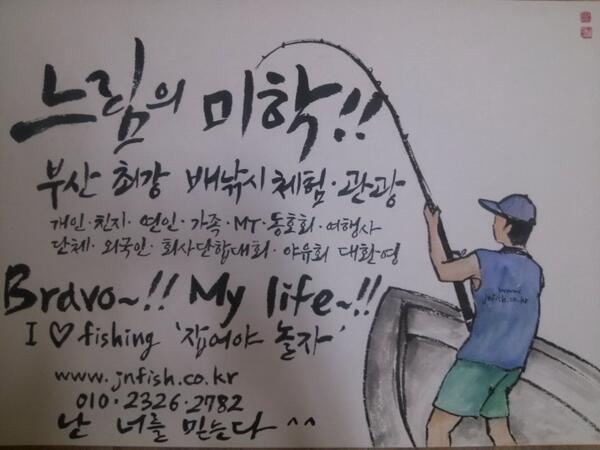 느림의 미학!!
부산 최강 배낚시 체험·관광
개인·친지·연인·가족·MT·동호회·여행사
단체·외국인·회사단합대회·야유회 대환영
Bravo~!! My life~!!
I ♡ fishing '잡어야 놀자'
www.jnfish.co.kr
010·2326·2782
난 너를 믿는다 ^^
jnfish.co.kr